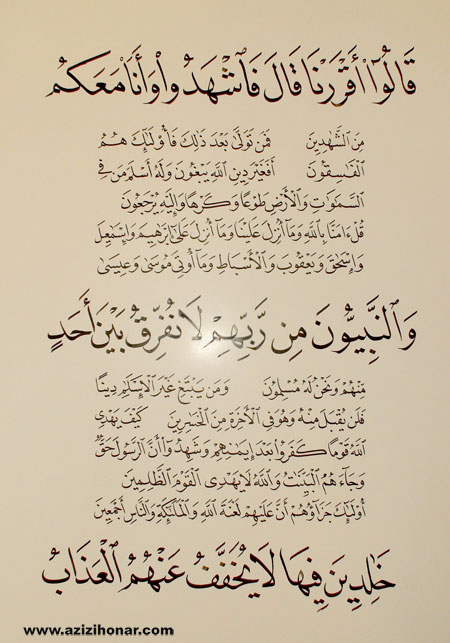 قَالُوٓا۟ أَقْرَرْنَا قَالَ فَٱشْهَدُوا۟ وَأَنَا۠ مَعَكُم
مِنَ ٱلشَّٰهِدِينَ فَمَن تَوَلَّىٰ بَعْدَ ذَٰلِكَ فَأُو۟لَٰٓئِكَ هُمُ
ٱلْفَٰسِقُونَ أَفَغَيْرَ دِينِ ٱللَّهِ يَبْغُونَ وَلَهُۥٓ أَسْلَمَ مَن فِى
ٱلسَّمَٰوَٰتِ وَٱلْأَرْضِ طَوْعًا وَكَرْهًا وَإِلَيْهِ يُرْجَعُونَ
قُلْ ءَامَنَّا بِٱللَّهِ وَمَآ أُنزِلَ عَلَيْنَا وَمَآ أُنزِلَ عَلَىٰٓ إِبْرَٰهِيمَ وَإِسْمَٰعِيلَ
وَإِسْحَٰقَ وَيَعْقُوبَ وَٱلْأَسْبَاطِ وَمَآ أُوتِىَ مُوسَىٰ وَعِيسَىٰ
وَٱلنَّبِيُّونَ مِن رَّبِّهِمْ لَا نُفَرِّقُ بَيْنَ أَحَدٍ
مِّنْهُمْ وَنَحْنُ لَهُۥ مُسْلِمُونَ وَمَن يَبْتَغِ غَيْرَ ٱلْإِسْلَٰمِ دِينًا
فَلَن يُقْبَلَ مِنْهُ وَهُوَ فِى ٱلْأَخِرَةِ مِنَ ٱلْخَٰسِرِينَ كَيْفَ يَهْدِى
ٱللَّهُ قَوْمًا كَفَرُوا۟ بَعْدَ إِيمَٰنِهِمْ وَشَهِدُوٓا۟ أَنَّ ٱلرَّسُولَ حَقٌّ
وَجَآءَهُمُ ٱلْبَيِّنَٰتُ وَٱللَّهُ لَا يَهْدِى ٱلْقَوْمَ ٱلظَّٰلِمِينَ
أُو۟لَٰٓئِكَ جَزَآؤُهُمْ أَنَّ عَلَيْهِمْ لَعْنَةَ ٱللَّهِ وَٱلْمَلَٰٓئِكَةِ وَٱلنَّاسِ أَجْمَعِينَ
خَٰلِدِينَ فِيهَا لَا يُخَفَّفُ عَنْهُمُ ٱلْعَذَابُ
www.azizihonar.com